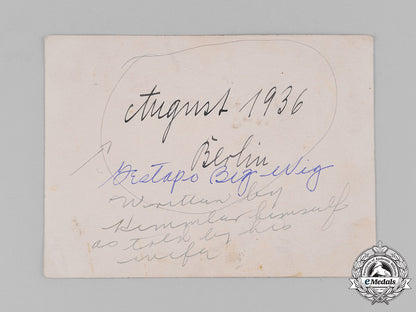 August 1936
Berlin
Gestapo Big-Wig
Written by
Himmler himself
as told by his
wife
eMedals